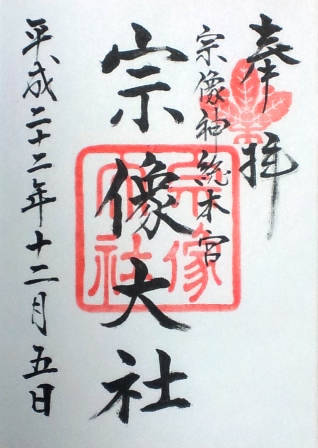 奉拝
宗像神総本宮
宗像大社
宗像大社
平成二十二年十二月五日